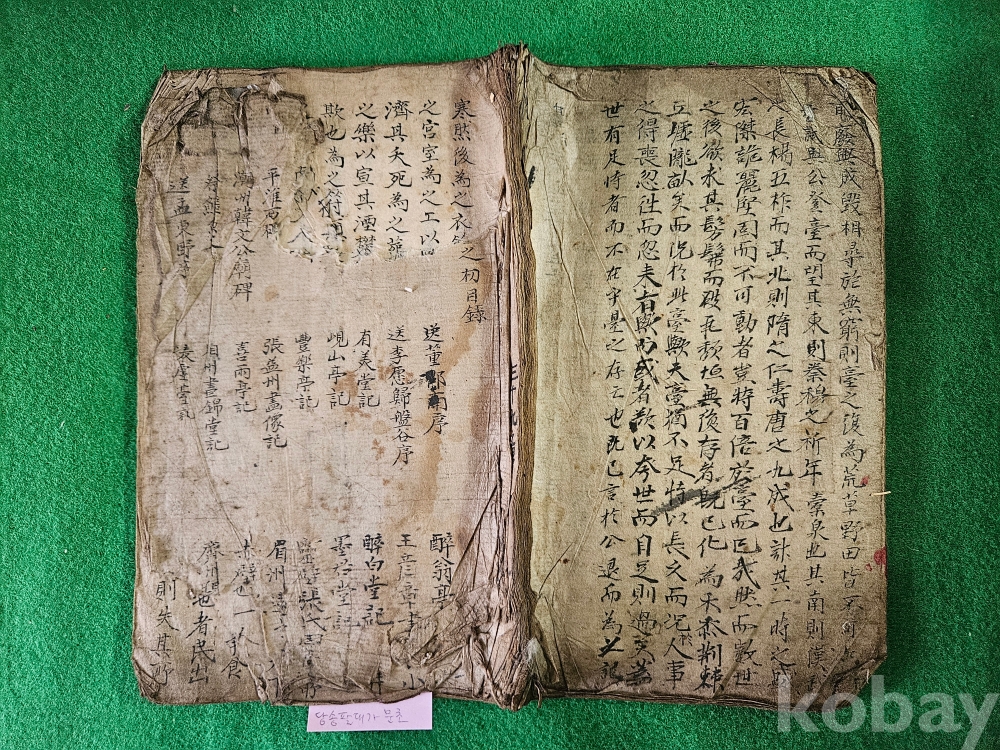 廢興成毀相尋於無窮則臺之復為荒草野田皆不可
與公登臺而望其東則秦穆之祈年橐泉也其南則漢
長楊五柞而其北則隋之仁壽唐之九成也計其一時之盛
宏傑詭麗堅固而不可動者豈特百倍於臺而已哉然而數世
之後欲求其髣髴而破瓦頹垣無復存者既已化為禾黍荊棘
丘墟隴畝矣而況於此臺歟夫臺猶不足恃以長久而況於人事
之得喪忽往而忽来者歟而或者欲以夸世而自足則過矣蓋
世有足恃者而不在乎臺之存亡也既已言於公退而為之記
寒然後為之衣 之初目錄
之宮室為之工以 送董邵南序 醉翁亭
濟其夭死為之 送李愿歸盤谷序 王彥章
之樂以宣其湮鬱 有美堂記 醉白堂記
欺也為之符 峴山亭記 墨君堂記
豐樂亭記
平淮西碑 張益州畫像記 眉州
潮州韓文公廟碑 喜雨亭記 赤壁 一 食
相州晝錦堂記 地者民出
送孟東野序 凌虛臺記 則失其所
당송팔대가 문초
kobay